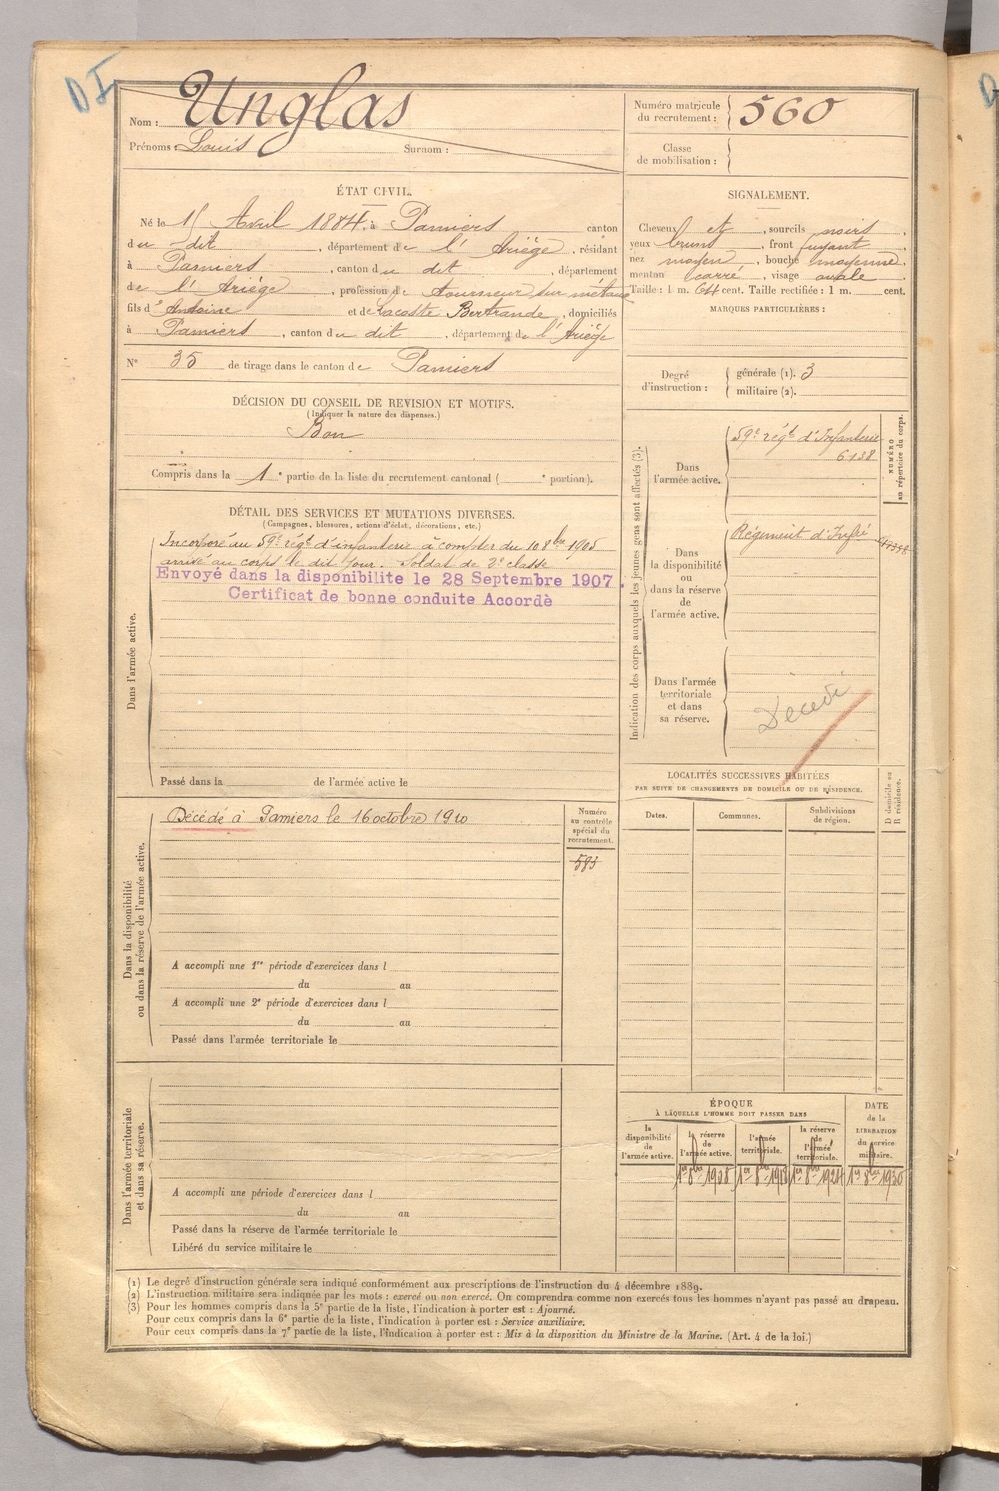 DI
Nom : Unglas
Prénoms : Louis Surnom :
Numéro matricule du recrutement : 560
Classe de mobilisation :
ÉTAT CIVIL.
Né le Avril 1884, à Pamiers canton
du dit, département de l'Ariège, résidant
à Pamiers, canton du dit, département
de l'Ariège, profession de tourneur sur métaux
fils d' Antoine et de Lacoste Bertrande, domiciliés
à Pamiers, canton du dit, département de l'Ariège
N° 35 de tirage dans le canton de Pamiers
SIGNALEMENT.
Cheveux et, sourcils noirs,
yeux bruns, front fuyant
nez moyen, bouche moyenne,
menton carré, visage ovale
Taille : 1 m. 64 cent. Taille rectifiée : 1 m. cent.
MARQUES PARTICULIÈRES :
Degré d'instruction : générale (1). 3
militaire (2).
DÉCISION DU CONSEIL DE REVISION ET MOTIFS.
(Indiquer la nature des dispenses.)
Bon
Compris dans la 1e partie de la liste du recrutement cantonal ( e portion).
DÉTAIL DES SERVICES ET MUTATIONS DIVERSES.
(Campagnes, blessures, actions d'éclat, décorations, etc.)
Dans l'armée active.
Incorporé au 59e régt d'infanterie à compter du 10 8bre 1905
arrivé au corps le dit jour. Soldat de 2e classe
Envoyé dans la disponibilite le 28 Septembre 1907.
Certificat de bonne conduite Accordè
Passé dans la de l'armée active le
Indication des corps auxquels les jeunes gens sont affectés (3).
NUMÉRO au répertoire du corps.
Dans l'armée active.
59e régt d'Infanterie
6138
Dans la disponibilité ou dans la réserve de l'armée active.
Régiment d'Infrie
Dans l'armée territoriale et dans sa réserve.
Décédé
LOCALITÉS SUCCESSIVES HABITÉES
PAR SUITE DE CHANGEMENTS DE DOMICILE OU DE RÉSIDENCE.
Dates. Communes. Subdivisions de région.
D domicile ou R résidence.
Dans la disponibilité ou dans la réserve de l'armée active.
Décédé à Pamiers le 16 octobre 1910
Numéro au contrôle spécial du recrutement.
593
A accompli une 1re période d'exercices dans l
du au
A accompli une 2e période d'exercices dans l
du au
Passé dans l'armée territoriale le
Dans l'armée territoriale et dans sa réserve.
A accompli une période d'exercices dans l
du au
Passé dans la réserve de l'armée territoriale le
Libéré du service militaire le
ÉPOQUE
À LAQUELLE L'HOMME DOIT PASSER DANS
la disponibilité de l'armée active.
la réserve de l'armée active.
l'armée territoriale.
la réserve de l'armée territoriale.
DATE de la LIBÉRATION du service militaire.
1er 8bre 1908 1er 8bre 1918 1er 8bre 1924 1er 8bre 1930
(1) Le degré d'instruction générale sera indiqué conformément aux prescriptions de l'instruction du 4 décembre 1889.
(2) L'instruction militaire sera indiquée par les mots : exercé ou non exercé. On comprendra comme non exercés tous les hommes n'ayant pas passé au drapeau.
(3) Pour les hommes compris dans la 5e partie de la liste, l'indication à porter est : Ajourné.
Pour ceux compris dans la 6e partie de la liste, l'indication à porter est : Service auxiliaire.
Pour ceux compris dans la 7e partie de la liste, l'indication à porter est : Mis à la disposition du Ministre de la Marine. (Art. 4 de la loi.)